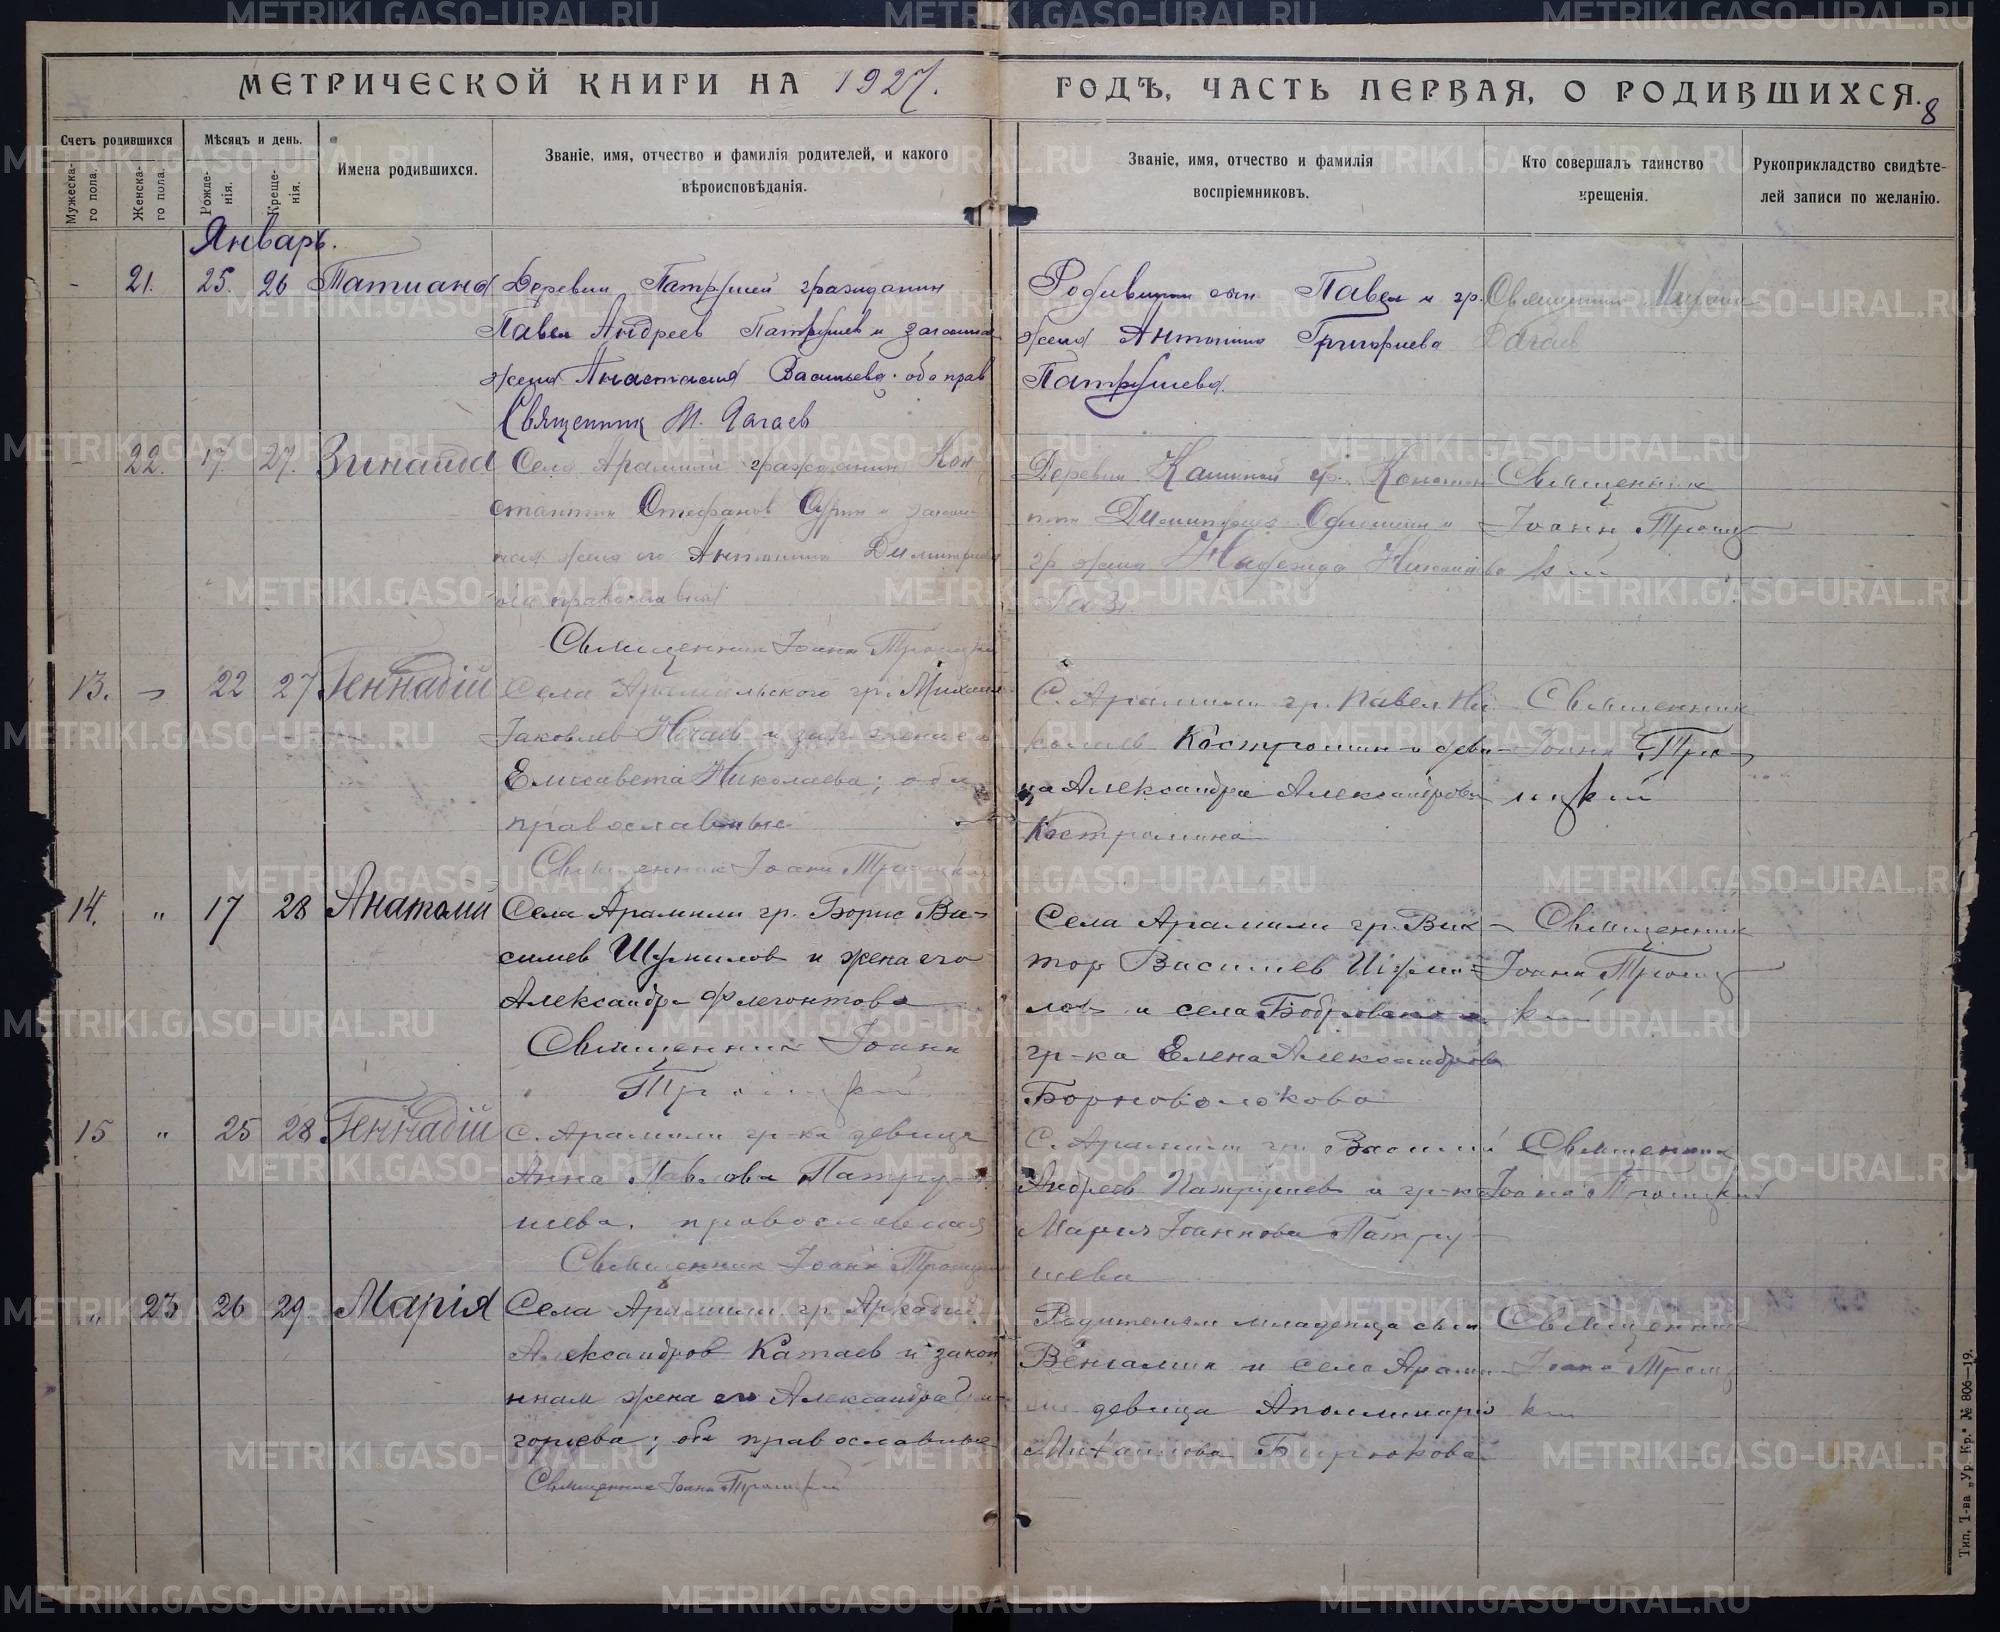 МЕТРИЧЕСКОЙ КНИГИ НА 1927. ГОДѢ, ЧАСТЬ ПЕРВАЯ, О РОДИВШИХСЯ.
8
Счетъ родившихся
Мужеска-го пола.
Женска-го пола.
Мѣсяцъ и день.
Рожде-нія.
Креще-нія.
Имена родившихся.
Званіе, имя, отчество и фамилія родителей, и какого
вѣроисповѣданія.
Званіе, имя, отчество и фамилія
воспріемниковъ.
Кто совершалъ таинство
крещенія.
Рукоприкладство свидѣте-
лей записи по желанію.
Январь.
- 21. 25. 26 Татиана
Деревни Патрушей гражданин
Павел Андреев Патрушев и законная
жена Анастасия Васильева. оба прав
Священник М. Рагаев
сын Павел и гр.
жена Антонина Григориева
Патрушева.
Священник
Рагаев
- 22. 17. 27. Зинаида
Села Арамили гражданин Кон
стантин Стефанов Сурин и закон-
ная жена его Антонина Димитриева
оба православныя
Священник Іоанн Троицкий
Деревни гр. Констан
тин Димитриев
гр жена Надежда Николаева
Священник
Іоанн Троиц
кий
13. 22 27 Геннадій
Села Арамильского гр. Михаил
Іаковлев и зак. жена его
Елисавета Николаева; оба
православные
Священник Іоанн Троицкий
С. Арамили гр. Павел Ни
колаев Костромин и деви-
ца Александра Александрова
Костромина
Священник
Іоанн Тро
ицкий
14. " 17 28 Анатолий
Села Арамили гр. Борис Ва-
сильев Шумилов и жена его
Александра Флегонтова
Священник Іоанн
Троицкий
Села Арамили гр. Вик-
тор Васильев Шуми-
лов и села Бобровского
гр-ка Елена Александрова
Борноволокова
Священник
Іоанн Троиц
кий
15 " 25 28 Геннадій
С. Арамили гр-ка девица
Анна Павлова Патру
шева, православная
Священник Іоанн Троицкий
С. Арамили гр. Василий
Андреев Патрушев и гр-ка
Мария Іоаннова Патру-
шева
Священник
Іоанн Троицкий
" 23 26 29. Марія
Села Арамили гр. Аркадий
Александров Катаев и закон
ная жена его Александра Гри-
гориева; оба православные
Священник Іоанн Троицкий
Родителям младенца сын
Вениамин и села Арами-
ли девица Аполлинария
Михаилова Бирюкова
Священник
Іоанн Троиц
кий
Тип. Т-ва „Ур. Кр.“ № 806—19.
METRIKI.GASO-URAL.RU